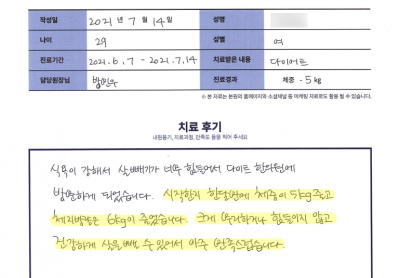 작성일 2021년 7월 14일 성명
나이 29 성별 여
진료기간 2021.6.7 - 2021.7.14 치료받은 내용 다이어트
담당원장님 방민우 진료경과 체중 -5kg
※ 본 자료는 본원의 홈페이지와 소셜채널 등 마케팅 자료로도 활용 될 수 있습니다.
치료 후기
내원동기, 치료과정, 만족도 등을 적어 주세요
식욕이 강해서 살빼기가 너무 힘들어서 다이트 한다전에
방문하게 되었습니다. 시작한지 한달만에 체중이 5kg 줄고
체지방량은 6kg이 줄었습니다. 크게 무리하거나 힘들이지 않고
건강하게 살을 뺄 수 있어서 아주 만족스럽습니다.